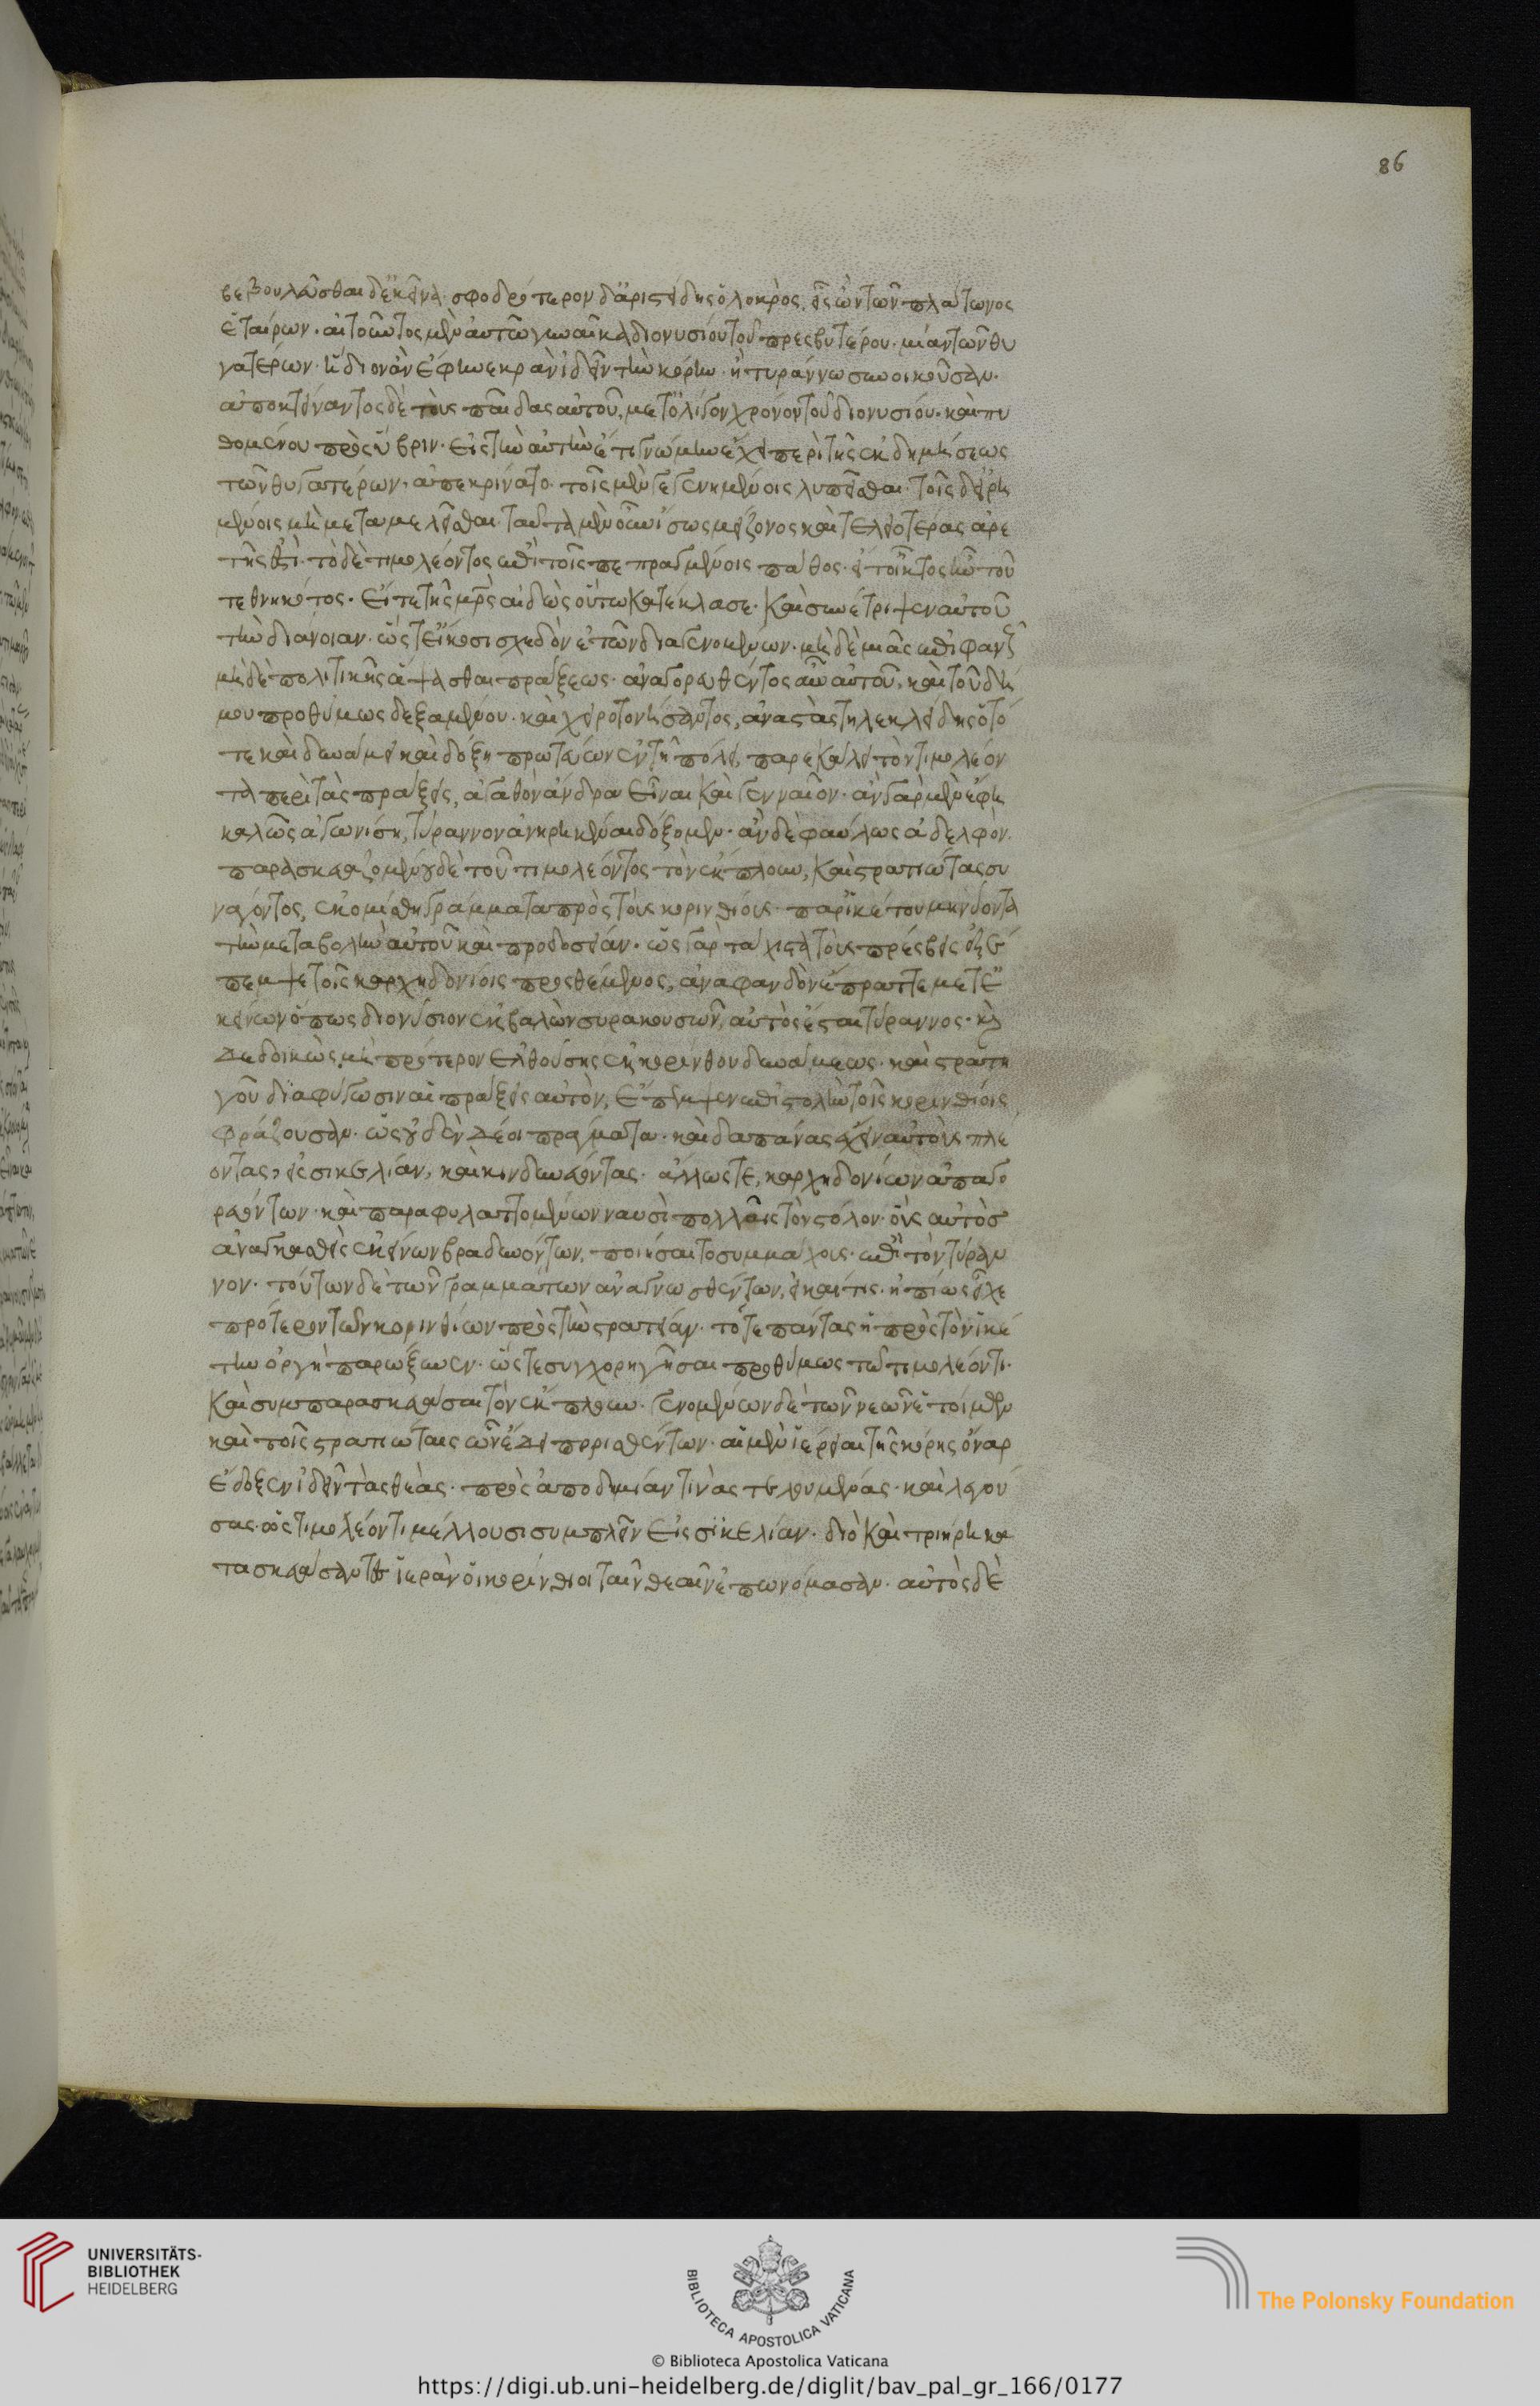 86
βεβουλεῦσθαι δἐκεῖνα. σφοδρότερον δ' ἀριστείδης ὁ λοκρὸς, εἷς ὢν τῶν πλάτωνος
ἑταίρων. αἰτοῦντος μὲν αὐτὸν γυναῖκα διονυσίου τοῦ πρεσβυτέρου. μίαν τῶν θυ
γατέρων. ἥδιον ἂν ἔφη νεκρὰν ἰδεῖν τὴν κόρην. ἢ τυράννω συνοικοῦσαν.
ἀποκτείναντος δὲ τοὺς παῖδας αὐτοῦ, μετ' ὀλίγον χρόνον τοῦ διονυσίου. καὶ πυ
θομένου πρὸς ὕβριν. εἰ τὴν αὐτὴν ἔτι γνώμην ἔχει περὶ τῆς ἐκδημήσεως
τῶν θυγατέρων, ἀπεκρίνατο. τοῖς μὲν γεγενημένοις λυπεῖσθαι. τοῖς δ' εἰρη
μένοις μὴ μεταμελεῖσθαι. ταῦτα μὲν οὖν ἴσως μείζονος καὶ τελειοτέρας ἀρε
τῆς ἐστι. τὸ δὲ τιμολέοντος ἐπὶ τοῖς πεπραγμένοις πάθος. εἴτ' οἶκτος ἦν τοῦ
τεθνηκότος. εἴτε τῆς μρς αἰδὼς οὕτω κατέκλασε. καὶ συνέτριψεν αὐτοῦ
τὴν διάνοιαν. ὥστ' εἴκοσι σχεδὸν ἐτῶν διαγενομένων. μηδὲ μιᾶς ἐπιφανοῦς
μηδὲ πολιτικῆς ἅψασθαι πράξεως. ἀναγορευθέντος οὖν αὐτοῦ, καὶ τοῦ δή
μου προθύμως δεξαμένου. καὶ χειροτονήσαντος, ἀναστὰς τηλεκλείδης ὁ τό
τε καὶ δυνάμει καὶ δόξη πρωτεύων ἐν τῆ πόλει, παρεκάλει τὸν τιμολέον
τα περὶ τὰς πράξεις, ἀγαθὸν ἄνδρα εἶναι καὶ γενναῖον. ἂν γὰρ μὲν ἔφη
καλῶς ἀγωνίση, τύραννον ἀνηρηκέναι δόξομεν. ἂν δὲ φαύλως ἀδελφόν.
παρασκευαζομένου δὲ τοῦ τιμολέοντος τὸν ἔκπλουν, καὶ στρατιώτας συ
νάγοντος, ἐκομίσθη γράμματα πρὸς τοὺς κορινθίους παρ' ἱκέτου μηνύοντα
τὴν μεταβολὴν αὐτοῦ καὶ προδοσίαν. ὡς γὰρ τάχιστα τοὺς πρέσβεις ἐξέ
πεμψε τοῖς καρχηδονίοις προσθέμενος, ἀναφανδὸν ἔπραττε μετ' ἐ
κείνων ὅπως διονύσιον ἐκβαλὼν συρακουσίων, αὐτὸς ἔσται τύραννος. καὶ
δεδοικὼς μὴ πρότερον ἐλθούσης ἐκ κορίνθου δυνάμεως. καὶ στρατη
γοῦ διαφύγωσιν αἱ πράξεις αὐτὸν, ἔπεμψεν ἐπιστολὴν τοῖς κορινθίοις
φράζουσαν. ὡς οὐδὲν δέοι πράγματα. καὶ δαπάνας ἔχειν αὐτοὺς πλέ
οντας, εἰς σικελίαν, καὶ κινδυνεύοντας. ἄλλως τε, καρχηδονίων ἀπαγο
ρευόντων. καὶ παραφυλαττομένων ναυσὶ πολλαῖς τὸν στόλον. οὓς αὐτὸς
ἀναγκασθεὶς ἐκείνων βραδυνόντων, ποιήσαιτο συμμάχους. ἐπὶ τὸν τύραν
νον. τούτων δὲ τῶν γραμμάτων ἀναγνωσθέντων, εἰ καί τις. ἠπίως εἶχε
πρότερον τῶν κορινθίων πρὸς τὴν στρατείαν. τότε πάντας ἡ πρὸς τὸν ἱκέ
την ὀργὴ παρώξυνεν. ὥστε συγχορηγῆσαι προθύμως τῶ τιμολέοντι.
καὶ συμπαρασκευάσαι τὸν ἔκπλουν. γενομένων δὲ τῶν νεῶν ἑτοίμων
καὶ τοῖς στρατιώταις ὧν ἔδει πορισθέντων. αἱ μὲν ἱέρειαι τῆς κόρης ὄναρ
ἔδοξεν ἰδεῖν τὰς θεάς. πρὸς ἀποδημίαν τινὰς στελλομένας. καὶ λεγού
σας. ὡς τιμολέοντι μέλλουσι συμπλεῖν εἰς σικελίαν. διὸ καὶ τριήρη κα
τασκευάσαντες ἱερὰν οἱ κορίνθιοι ταῖν θεαῖν ἐπωνόμασαν. αὐτὸς δὲ
UNIVERSITÄTS-
BIBLIOTHEK
HEIDELBERG
BIBLIOTECA APOSTOLICA VATICANA
The Polonsky Foundation
© Biblioteca Apostolica Vaticana
https://digi.ub.uni-heidelberg.de/diglit/bav_pal_gr_166/0177